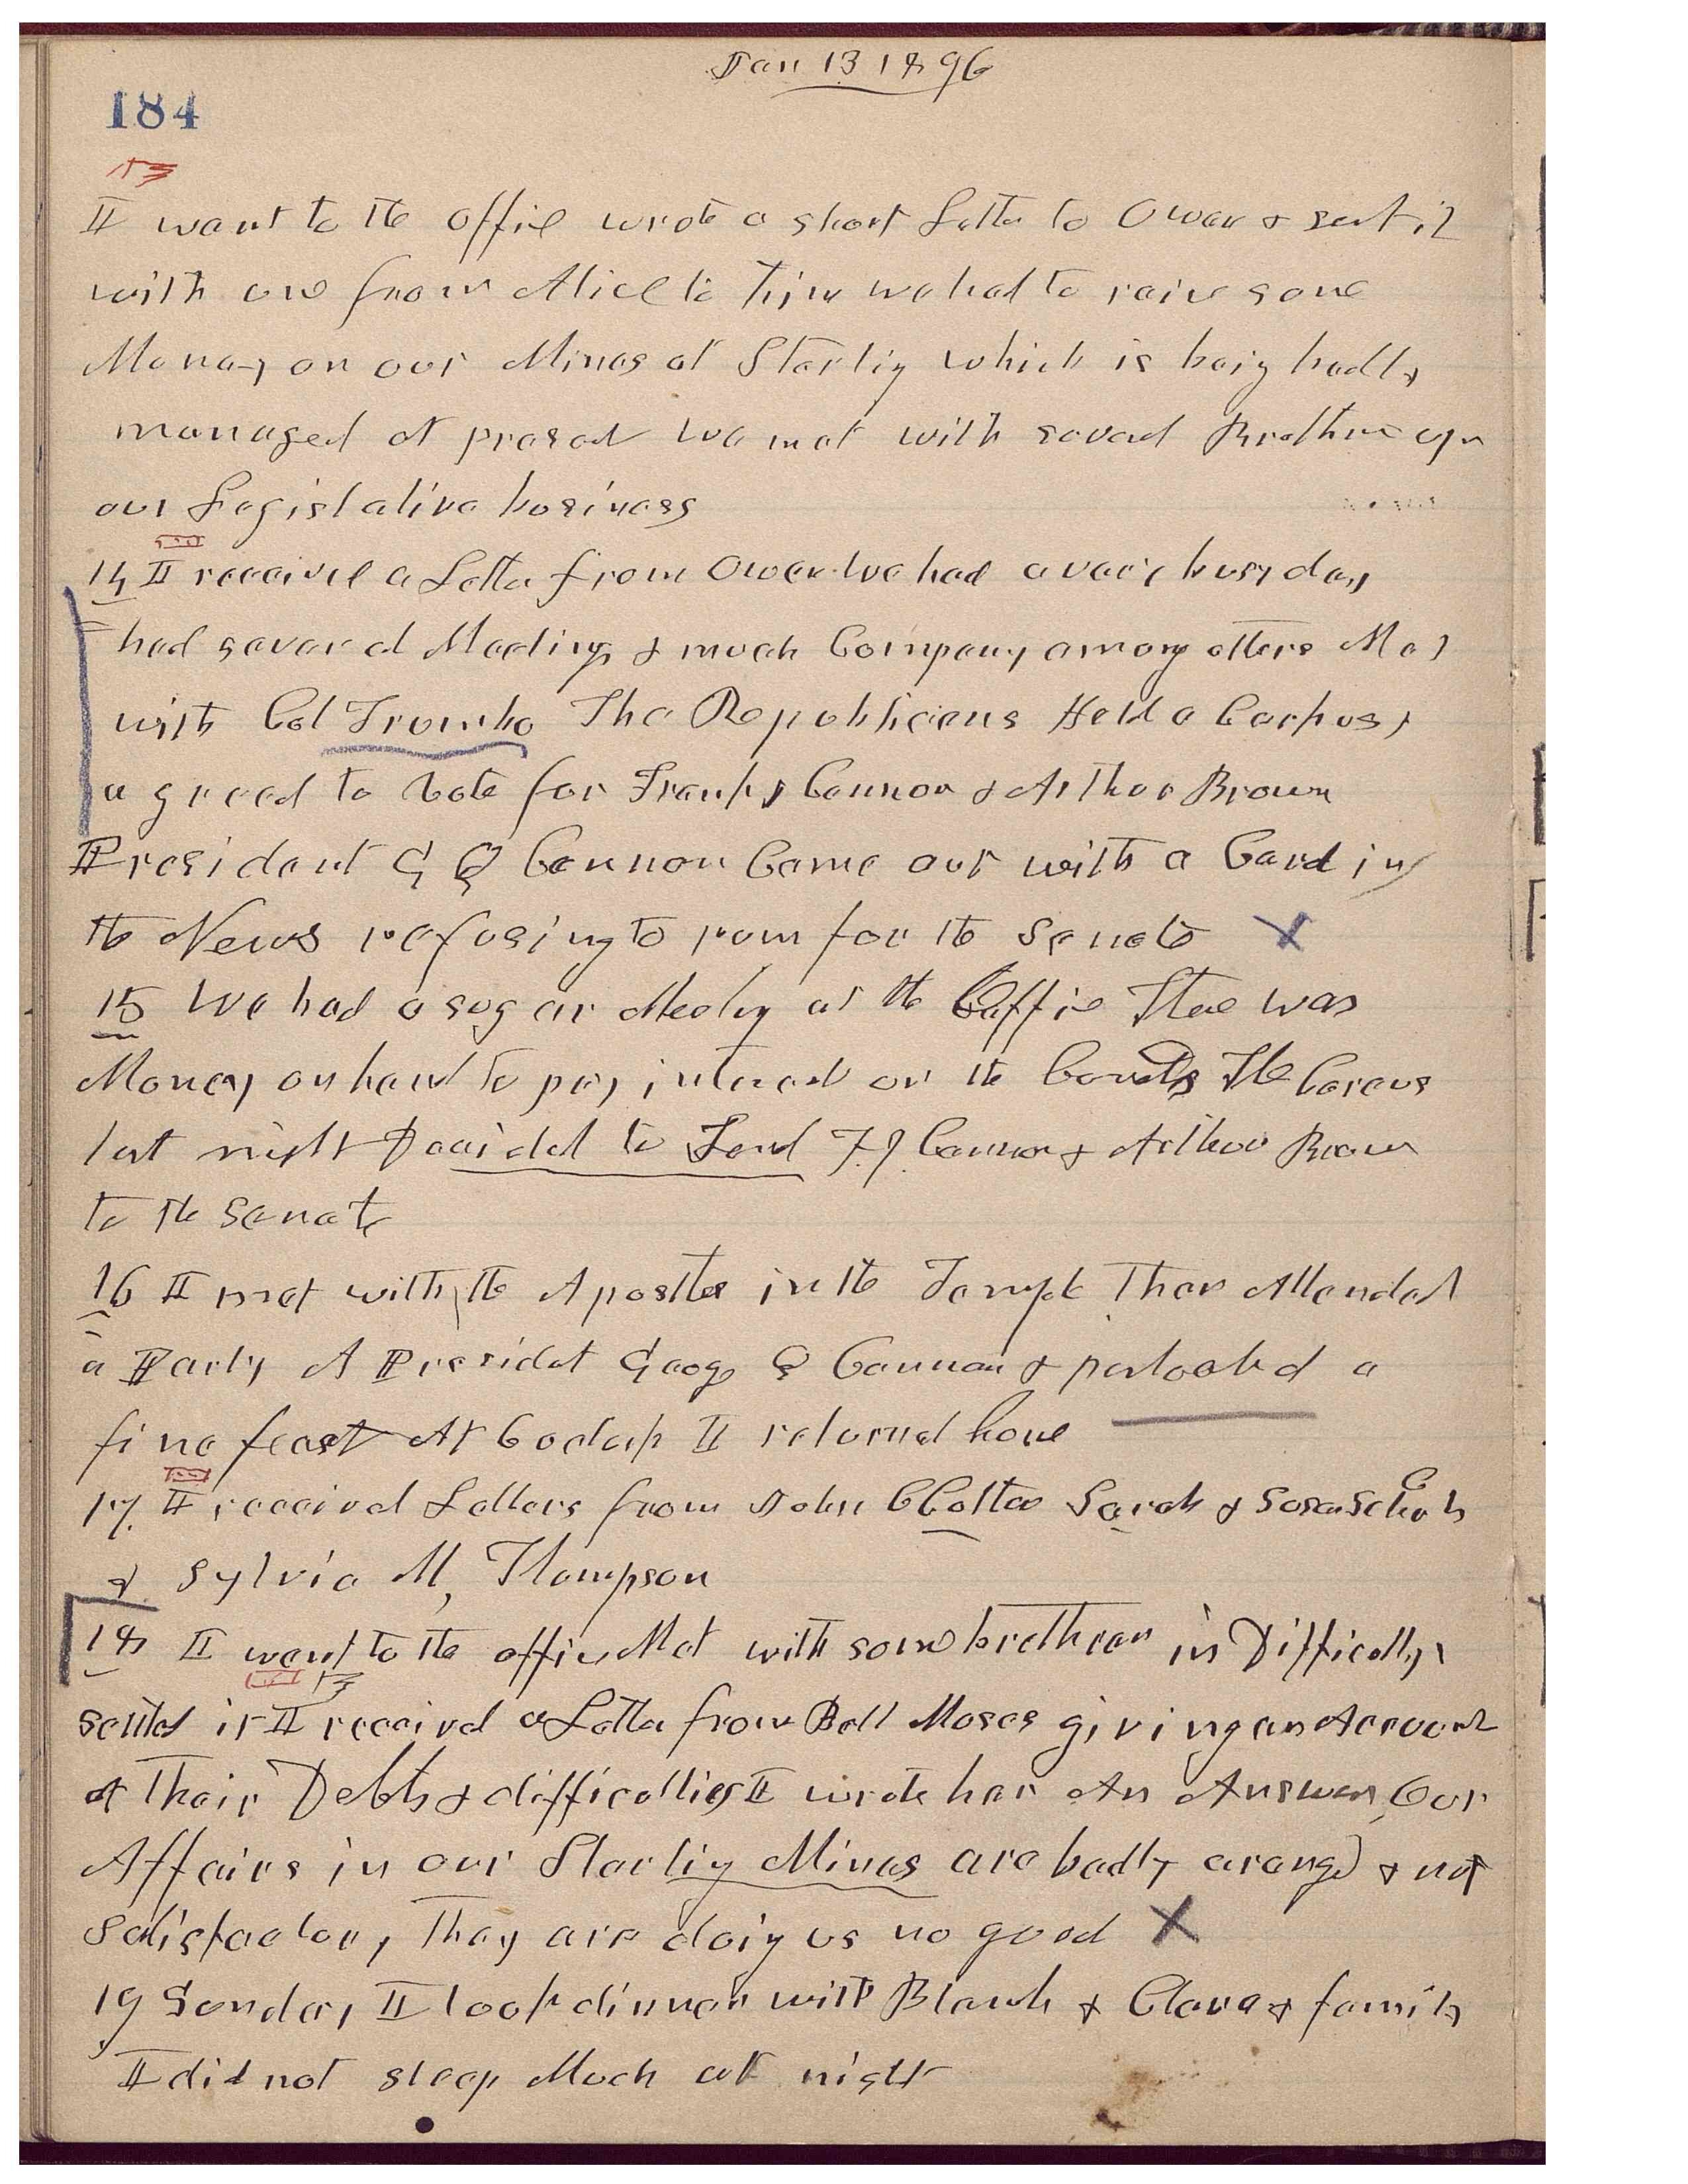 Jan 13 1896
184
I went to the office wrote a short Letter to Owen & sent it
with one from Alice to him we had to raise some
Money on our Mines at Sterling which is being badly
managed at present We met with several Brethren upn
our Legislative business
14 I received a Letter from Owen We had a very busy day
had several Meetings & much Company among others Met
with Col Trumbo The Republicans Held a Corkus &
agreed to Vote for Frank J Cannon & Arthur Brown
President G Q Cannon Came out with a Card in
the News refusing to runn for the Senate X
15 We had a sugar Meeting at the Office There was
Money on hand to pay interest on the Bonds The Corcus
last night Decided to Send F. J. Cannon & Arthur Brown
to the Senate
16 I met with the Apostles in the Temple Then Attended
a Party At President George Q Cannon & partook of a
fine feast At 6 oclock I returned home
17. I received Letters from John C Cotter Sarah & Susan Scholes
& Sylvia M, Thompson
18 I went to the office Met with some brethren in Difficulty &
settled it I received a Letter from Bell Moses giving an Account
of their Debts & difficulties I wrote her An Answer, Our
Affairs in our Sterling Mines are badly aranged & not
satisfactory, They are doing us no good X
19 Sunday I took dinner with Blanch & Clara & family
I did not sleep Much at night